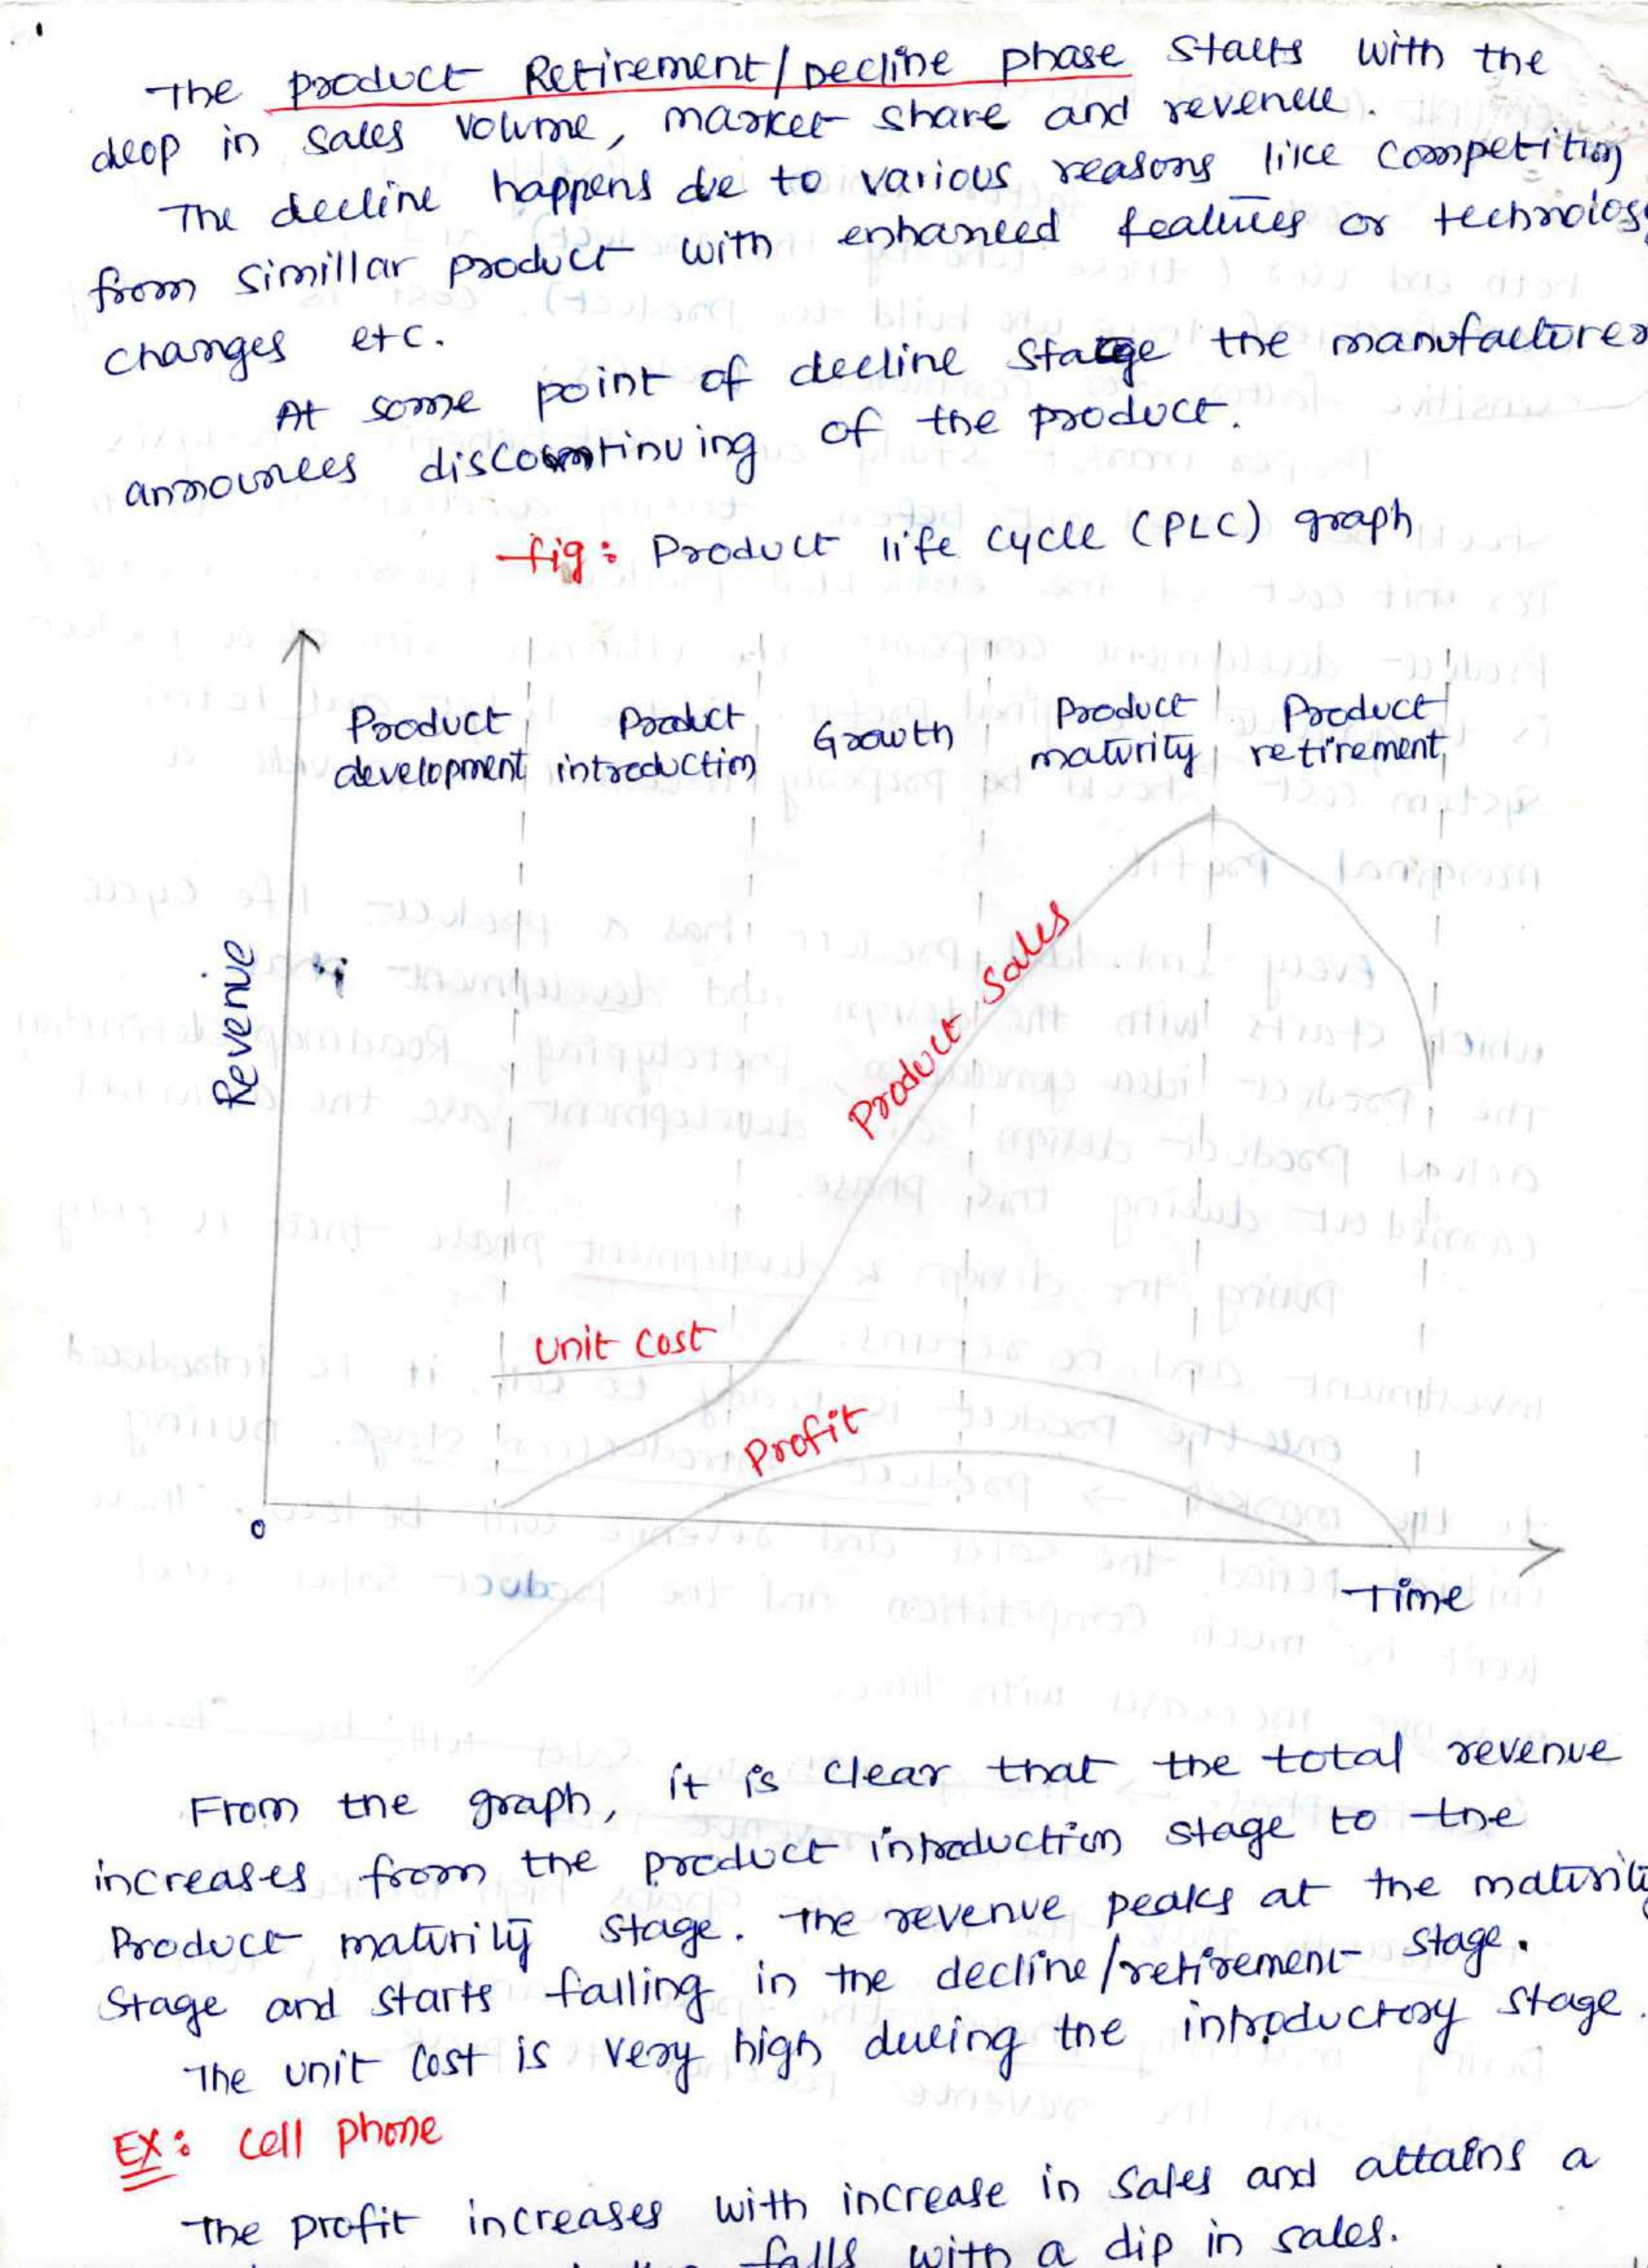 The product Retirement/Decline phase starts with the
drop in sales volume, market share and revenue.
The decline happens due to various reasons like competition
from simillar product with enhanced features or technology
changes etc.
At some point of decline stage the manufacturer
announces discontinuing of the product.
fig: Product life cycle (PLC) graph
Product Product Growth Product Product
development introduction maturity retirement
Revenue
Product Sales
Unit Cost
Profit
0
Time
From the graph, it is clear that the total revenue
increases from the product introduction stage to the
Product maturity stage. The revenue peaks at the maturity
stage and starts falling in the decline/retirement stage.
The unit cost is very high during the introductory stage.
EX: Cell phone
The profit increases with increase in sales and attains a
falls with a dip in sales.